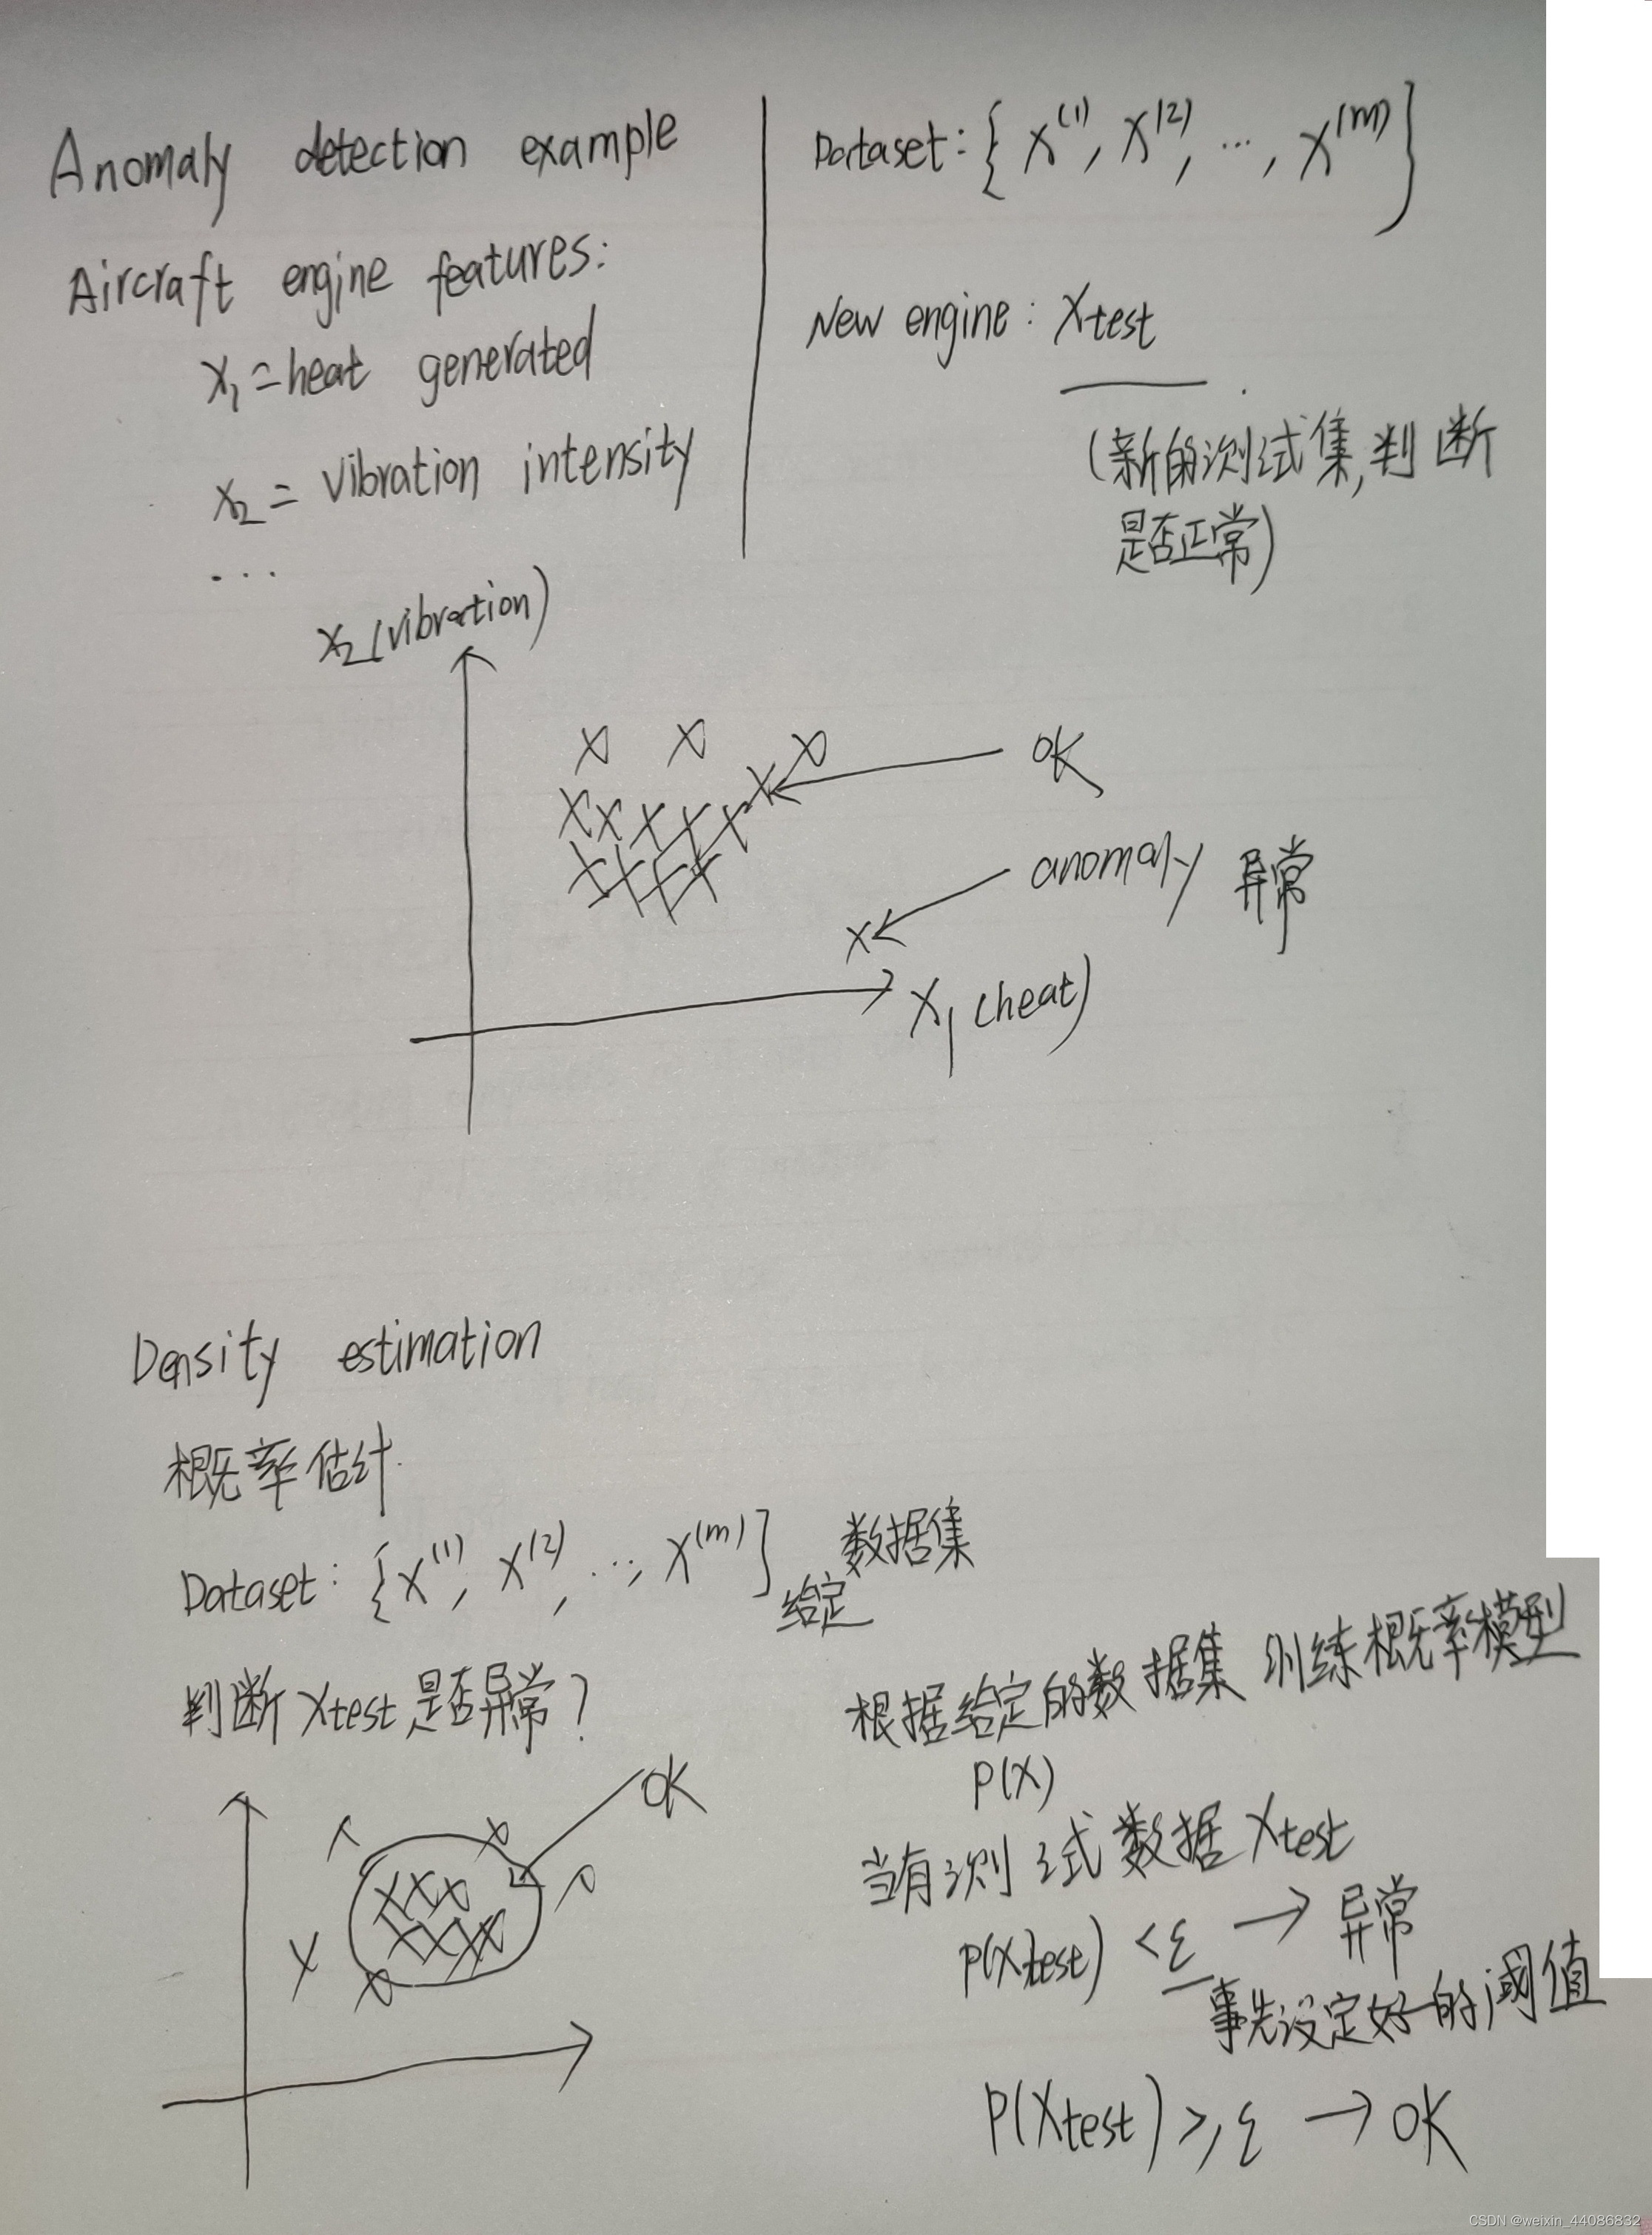 Anomaly detection example
Aircraft engine features:
x₁ = heat generated
x₂ = vibration intensity
...
Dataset: { x⁽¹⁾, x⁽²⁾, ..., x⁽ᵐ⁾ }
New engine: Xtest
(新的测试集,判断
是否正常)
x₂ (vibration)
OK
anomaly 异常
x₁ (heat)
Density estimation
概率估计
Dataset: { x⁽¹⁾, x⁽²⁾, ..., x⁽ᵐ⁾ } 给定 数据集
判断 Xtest 是否异常?
OK
根据给定的数据集 训练概率模型
P(X)
当有测试数据 Xtest
P(Xtest) < ε → 异常
事先设定好的阈值
P(Xtest) ≥ ε → OK
CSDN @weixin_44086832